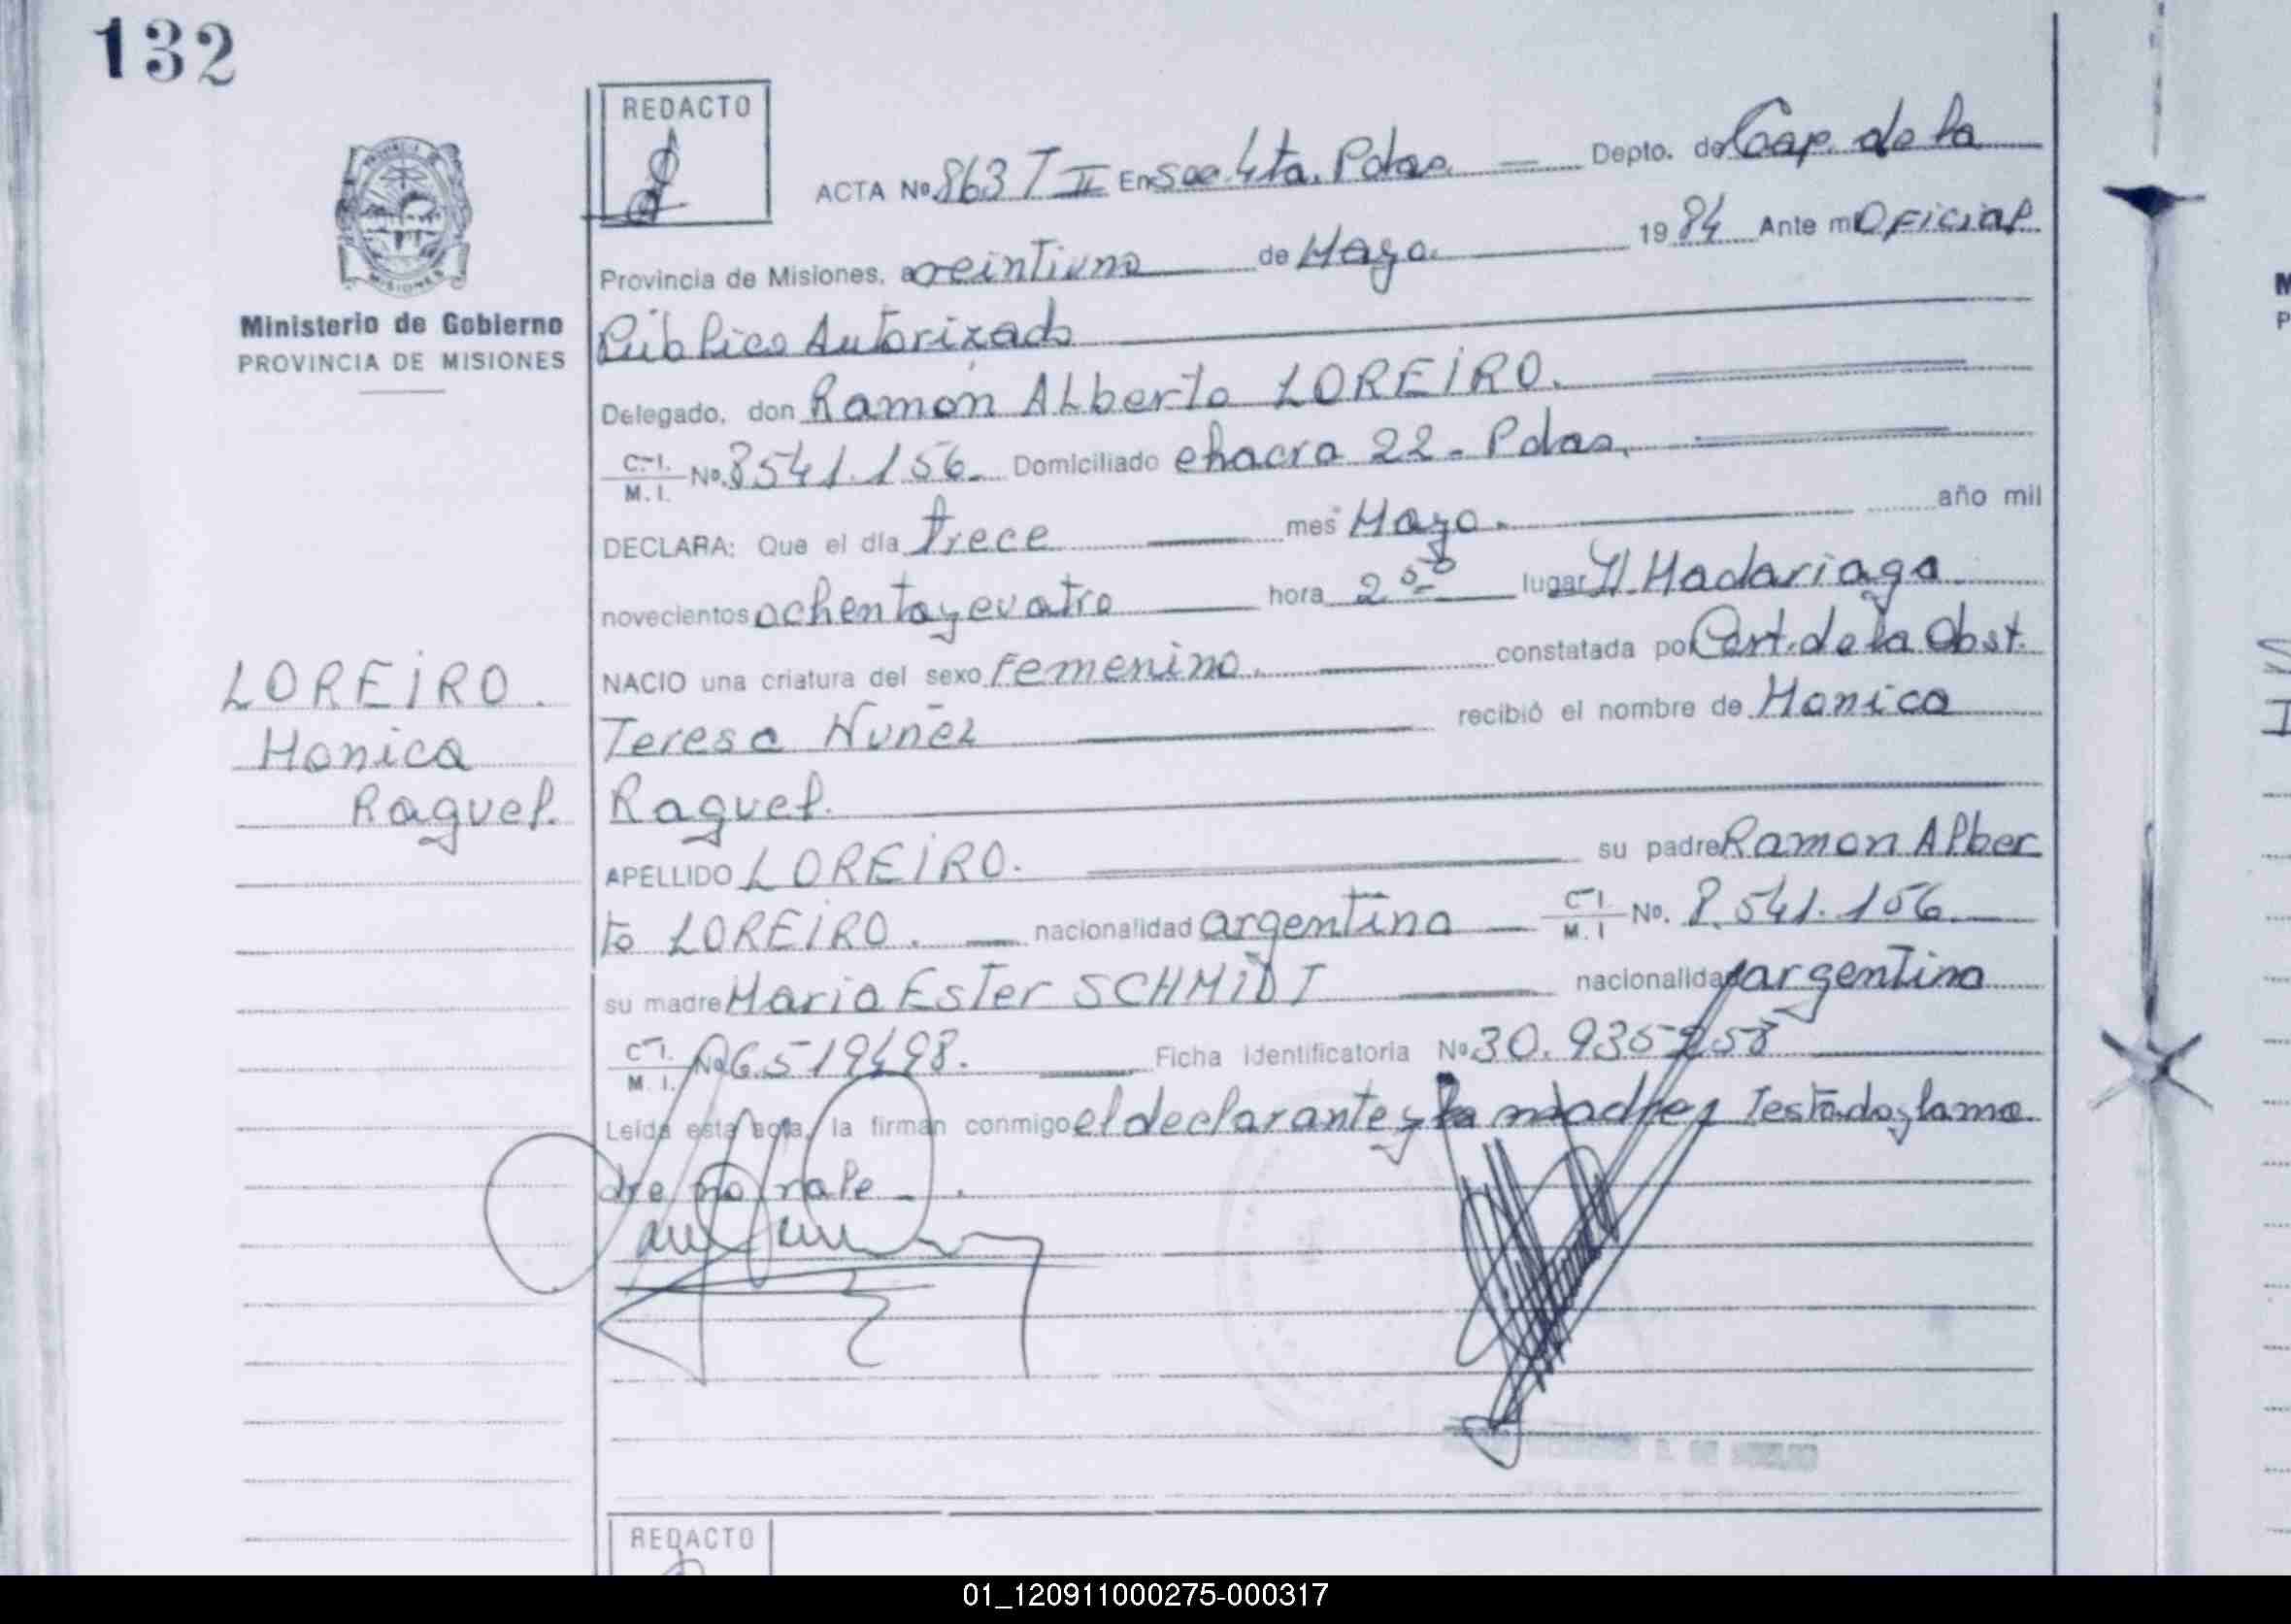 132
REDACTO
ACTA Nº 863 T II En Sec 4ta. Pdas. — Depto. de Cap. de la
Provincia de Misiones, a veintiuno de Mayo. 1984 Ante mi Oficial
Ministerio de Gobierno
PROVINCIA DE MISIONES
Público Autorizado
Delegado, don Ramón Alberto LOREIRO.
C.I. M.I. Nº 8541.156. Domiciliado chacra 22 - Pdas.
DECLARA: Que el día trece mes Mayo. año mil
novecientos ochenta y cuatro hora 2 lugar H. Madariaga
NACIO una criatura del sexo Femenino. constatada por Cert. de la Obst.
Teresa Nuñez recibió el nombre de Monica
Raquel.
LOREIRO.
Monica
Raquel.
APELLIDO LOREIRO. su padre Ramon Alber
to LOREIRO. nacionalidad argentina C.I. M.I Nº. 8.541.156.
su madre Maria Ester SCHMIDT nacionalidad argentina
C.I. M.I. Nº 6.519498. Ficha identificatoria Nº 30.935
Leída esta acta, la firman conmigo el declarante y la madre, Testado y la ma
dre no vale -.
REDACTO
01_120911000275-000317